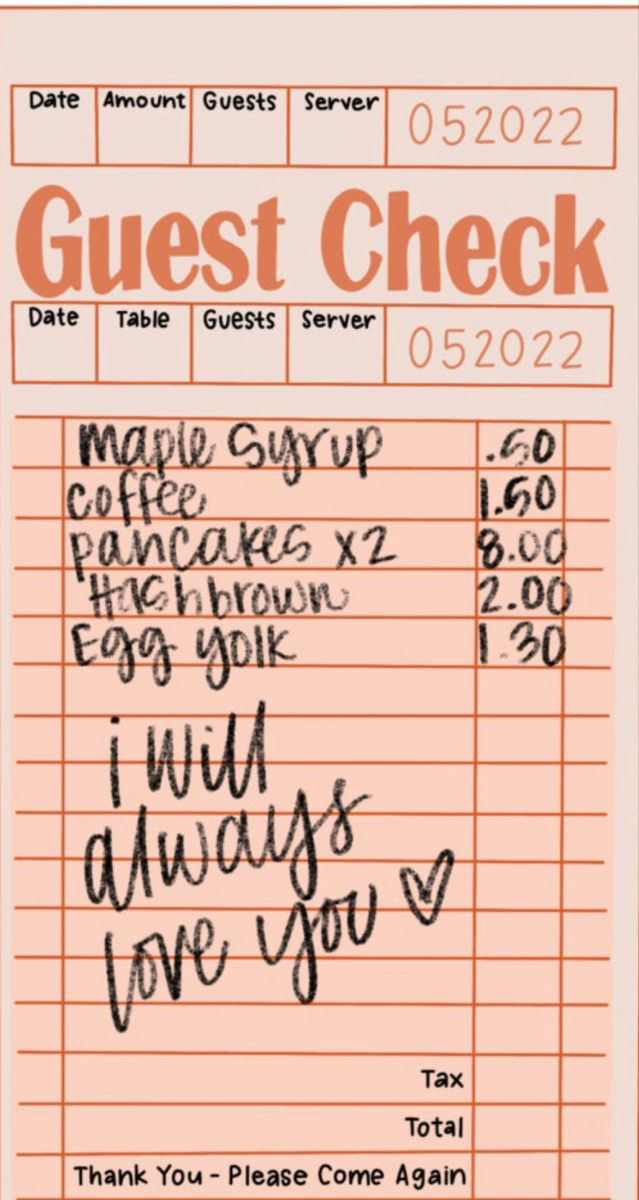 Date Amount Guests Server 052022
Guest Check
Date Table Guests Server 052022
maple syrup .50
coffee 1.50
pancakes x2 8.00
Hashbrown 2.00
Egg yolk 1.30
i will
always
love you ♡
Tax
Total
Thank You - Please Come Again